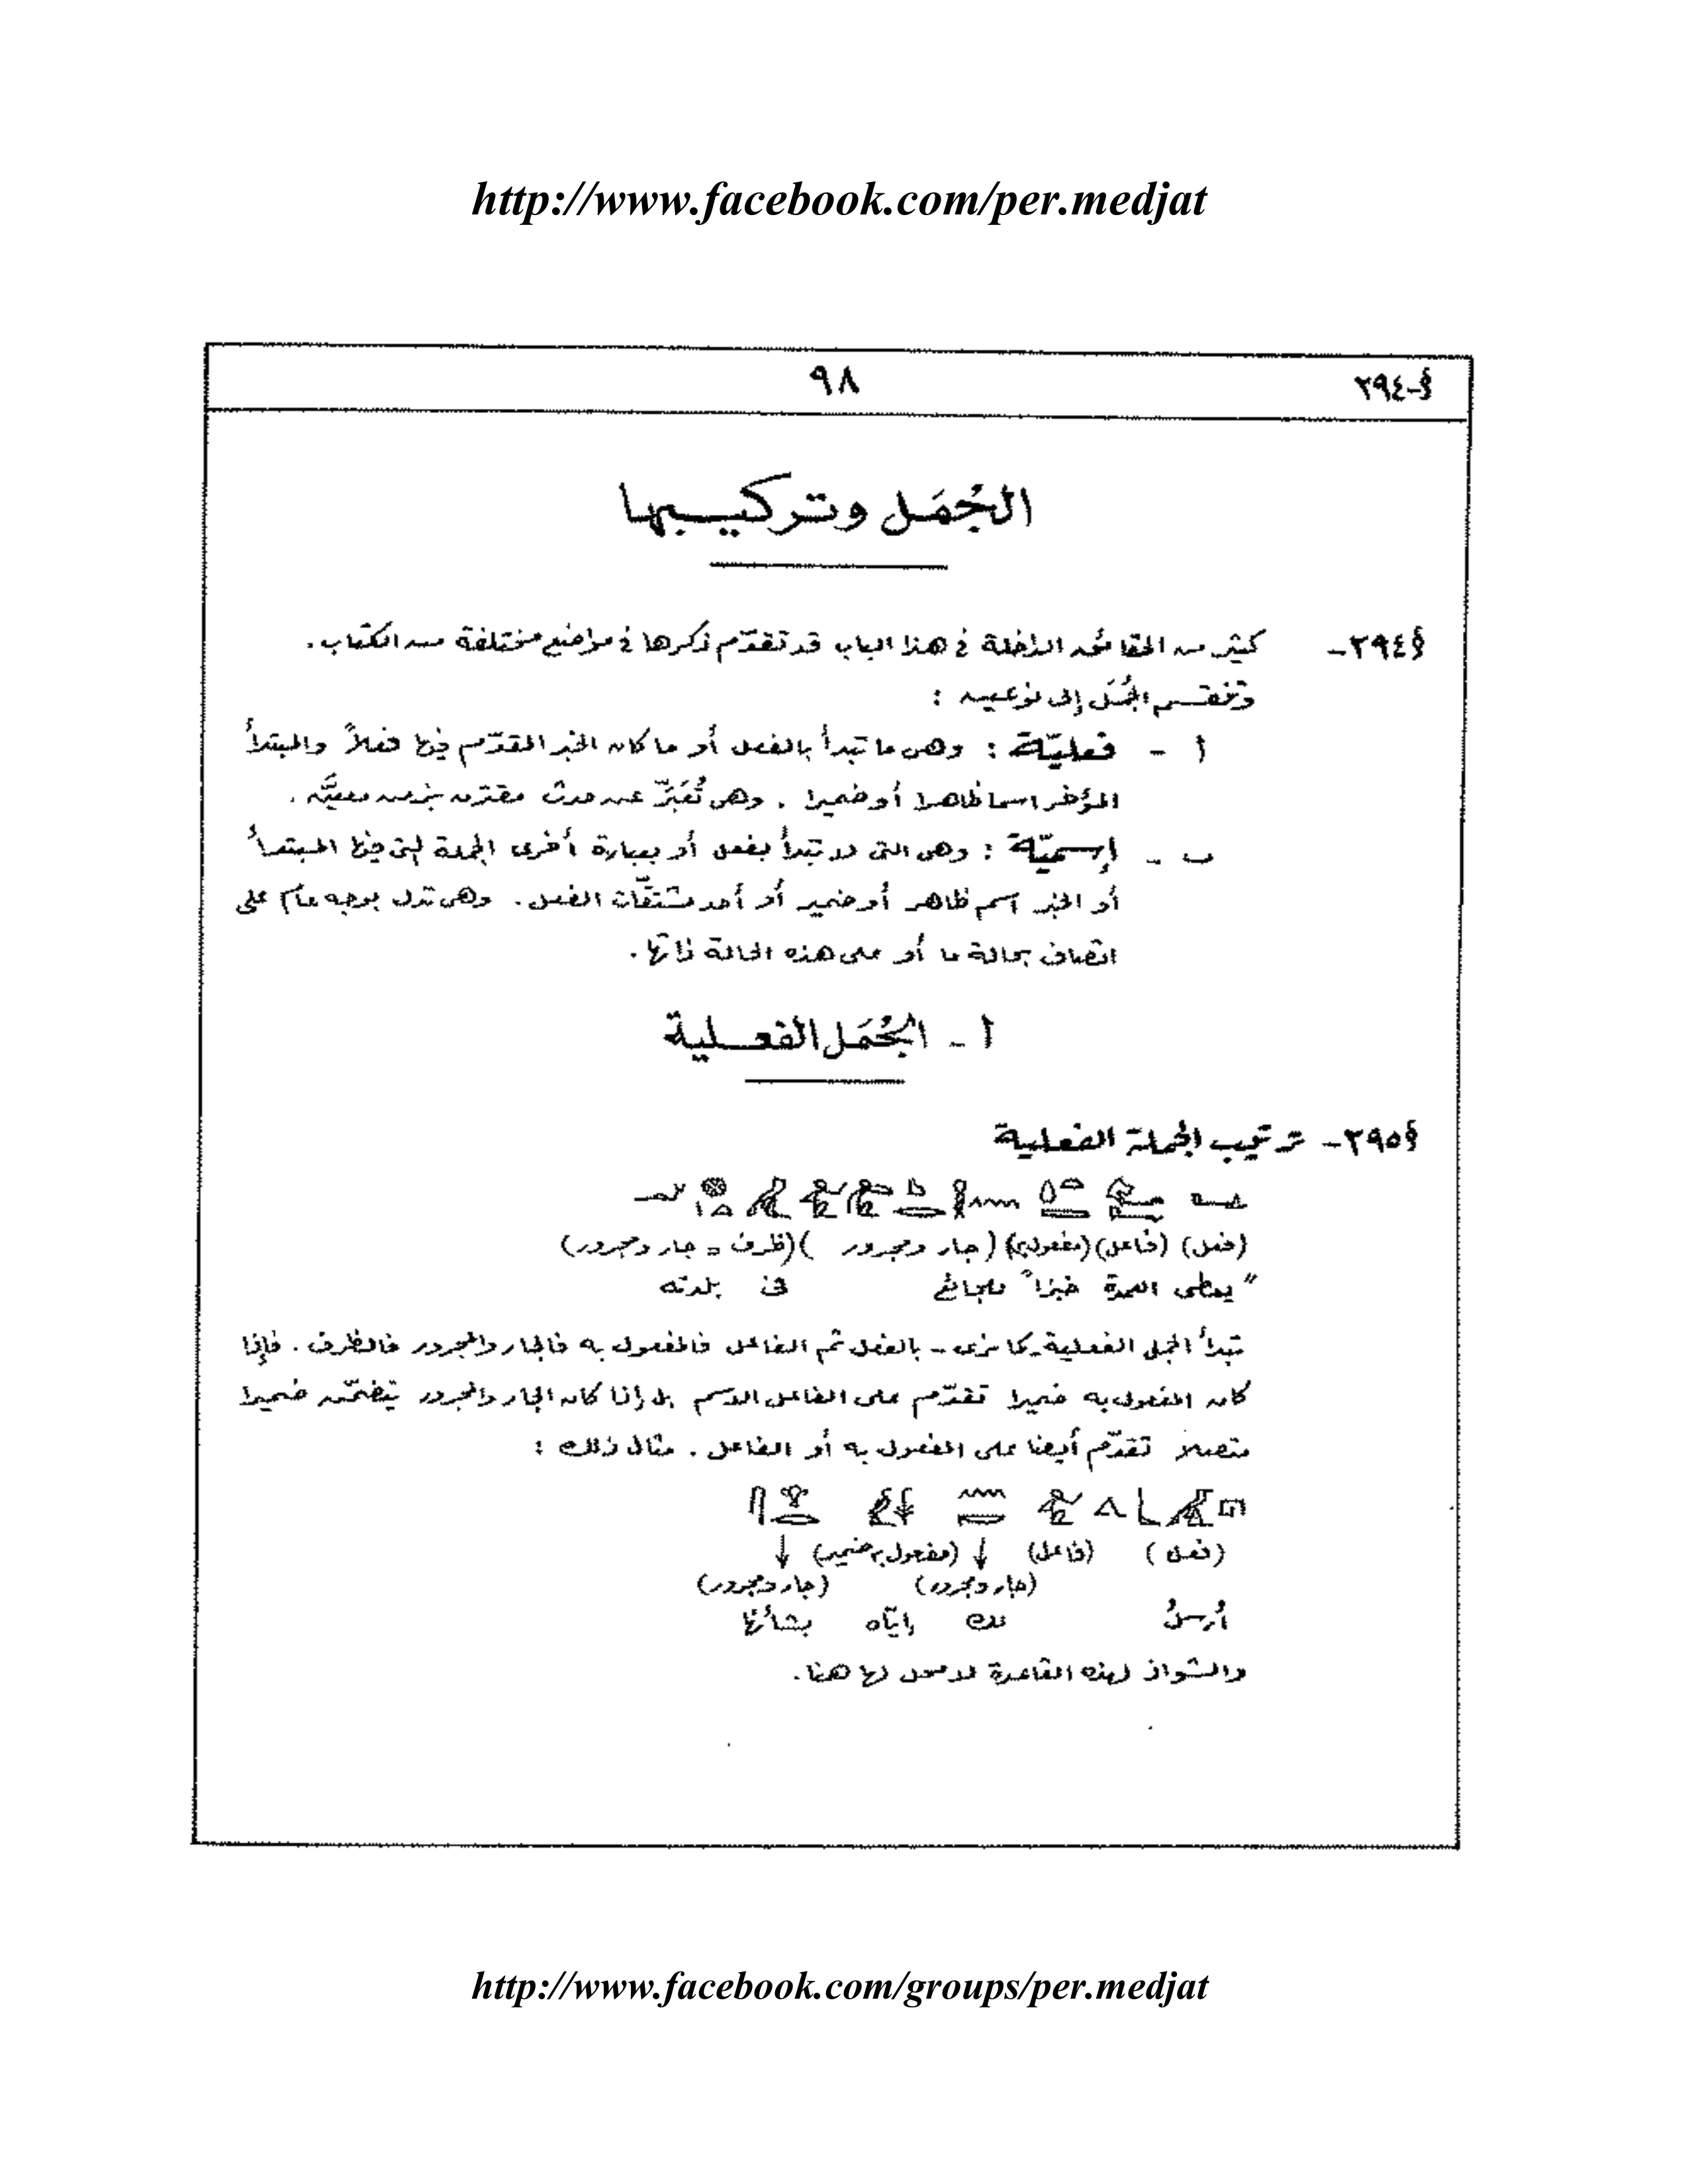 http://www.facebook.com/per.medjat
§-٢٩٤ ٩٨
الجُمَل وتركيبها
§٢٩٤- كثير من الحقائق الداخلة في هذا الباب قد تقدّم ذكرها في مواضع مختلفة من الكتاب.
وتنقسم الجُمَل إلى نوعين :
أ - فعليّة : وهى ما تبدأ بالفعل أو ما كان الخبر المقدّم فيها فعلاً والمبتدأ
المؤخر اسما ظاهرا أو ضميرا . وهى تُعَبِّر عن حدث مقترن بزمن معيَّن .
ب - إسميّة : وهى التى لا تبدأ بفعل أو بعبارة أخرى الجملة التى فيها المبتدأ
أو الخبر اسم ظاهر أو ضمير أو أحد مشتقّات الفعل . وهى تدل بوجه عام على
اتصاف بحالة ما أو على هذه الحالة ذاتها .
أ - الجُمَل الفعلية
§٢٩٥- ترتيب الجملة الفعلية
(فعل) (فاعل) (مفعول به) (جار ومجرور ) (ظرف = جار ومجرور)
" يعطى العمدة خبزاً للجائع فى بلدته
تبدأ الجمل الفعلية - كما نرى - بالفعل ثم الفاعل فالمفعول به فالجار والمجرور فالظرف . فإذا
كان المفعول به ضميرا تقدّم على الفاعل الاسم بل إذا كان الجار والمجرور يتضمّن ضميرا
متصلا تقدّم أيضا على المفعول به أو الفاعل . مثال ذلك :
(فعل ) (فاعل) ↓ (مفعول به ضمير) ↓
(جار ومجرور) (جار ومجرور)
أرسلُ لك إيّاه بشأنها
والشواذ لهذه القاعدة لا محل لها هنا .
http://www.facebook.com/groups/per.medjat